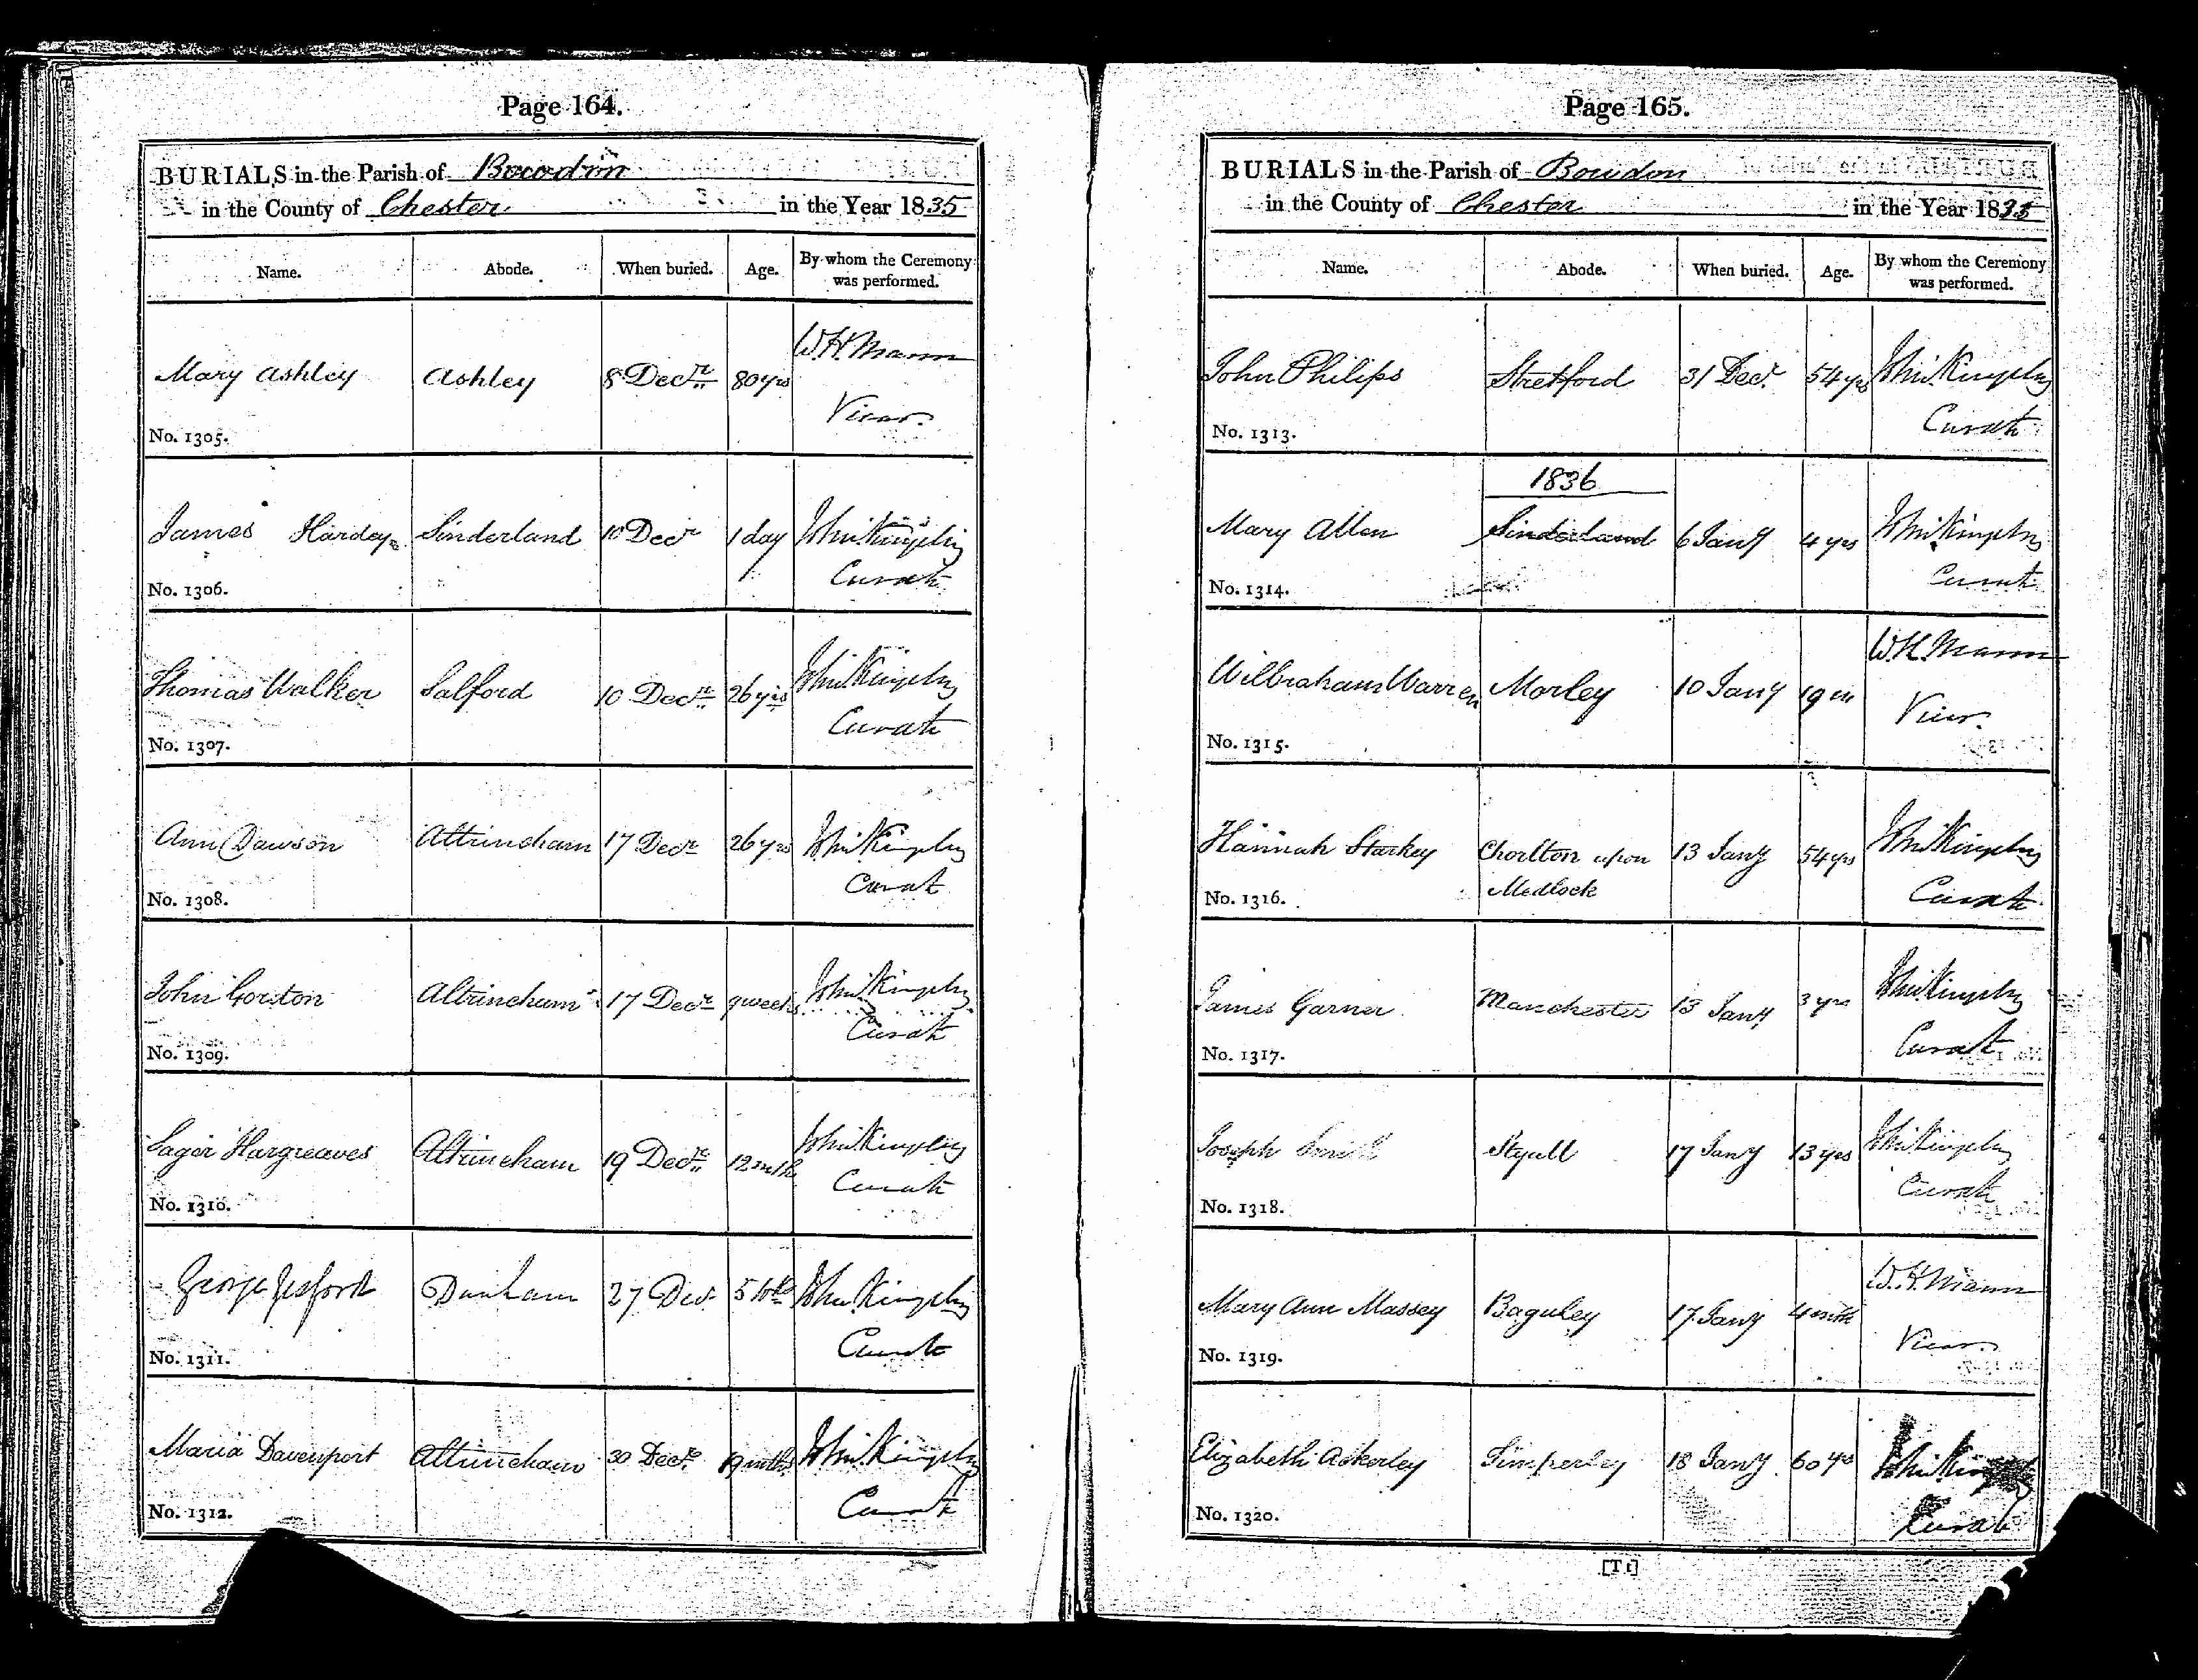 Page 164.
BURIALS in the Parish of Bowdon
in the County of Chester in the Year 1835
Name. Abode. When buried. Age. By whom the Ceremony was performed.
Mary Ashley Ashley 8 Decr 80 yrs W H Mann Vicar.
No. 1305.
James Hardey Sinderland 10 Decr 1 day John Kingsley Curate
No. 1306.
Thomas Walker Salford 10 Decr 26 yrs John Kingsley Curate
No. 1307.
Ann Dawson Altrincham 17 Decr 26 yrs John Kingsley Curate
No. 1308.
John Gorton Altrincham 17 Decr 9 weeks John Kingsley Curate
No. 1309.
Sager Hargreaves Altrincham 19 Decr 12 mth John Kingsley Curate
No. 1310.
George Dunham 27 Dec. 5 John Kingsley Curate
No. 1311.
Maria Davenport Altrincham 30 Decr 19 mths John Kingsley Curate
No. 1312.
Page 165.
BURIALS in the Parish of Bowdon
in the County of Chester in the Year 1835
Name. Abode. When buried. Age. By whom the Ceremony was performed.
John Philips Stretford 31 Decr. 54 yrs John Kingsley Curate
No. 1313.
1836
Mary Allen Sinderland 6 Jany 4 yrs John Kingsley Curate
No. 1314.
Wilbraham Warren Morley 10 Jany 19 m W. H. Mann Vicar.
No. 1315.
Hannah Starkey Chorlton upon Medlock 13 Jany 54 yrs John Kingsley Curate
No. 1316.
James Garner Manchester 13 Jany 3 yrs John Kingsley Curate
No. 1317.
Joseph Smith Styall 17 Jany 13 yrs John Kingsley Curate
No. 1318.
Mary Ann Massey Baguley 17 Jany 4 mth W. H. Mann Vicar.
No. 1319.
Elizabeth Ackerley Timperley 18 Jany 60 yrs John Kingsley Curate
No. 1320.
[T t]